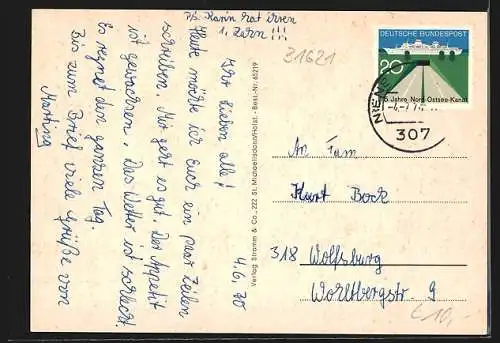 P.S. Karin hat ihren
1. Zahn!!!
4.6.70
Ihr Lieben alle!
Heute möchte ich Euch ein paar Zeilen
schreiben. Mir geht es gut. Der Appetit
ist gewachsen. Das Wetter ist schlecht.
Es regnet den ganzen Tag.
Bis zum Brief viele Grüße von
31621
Verlag Stramm & Co., 222 St. Michaelisdonn/Holst. - Best.-Nr. 65219
DEUTSCHE BUNDESPOST
20
75 Jahre Nord-Ostsee-Kanal
307
An Fam.
Kurt Bock
318 Wolfsburg
Wohltbergstr. 9
€ 10,-